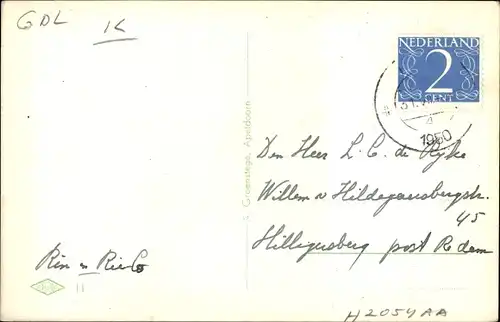 GDL
1K
NEDERLAND
2
CENT
31
1950
Den Heer L. C. de Rijke
Willem v Hildegaersbergstr.
45
Hilligersberg post R dam
Rien en Rie
Groenstege, Apeldoorn
H2054AA